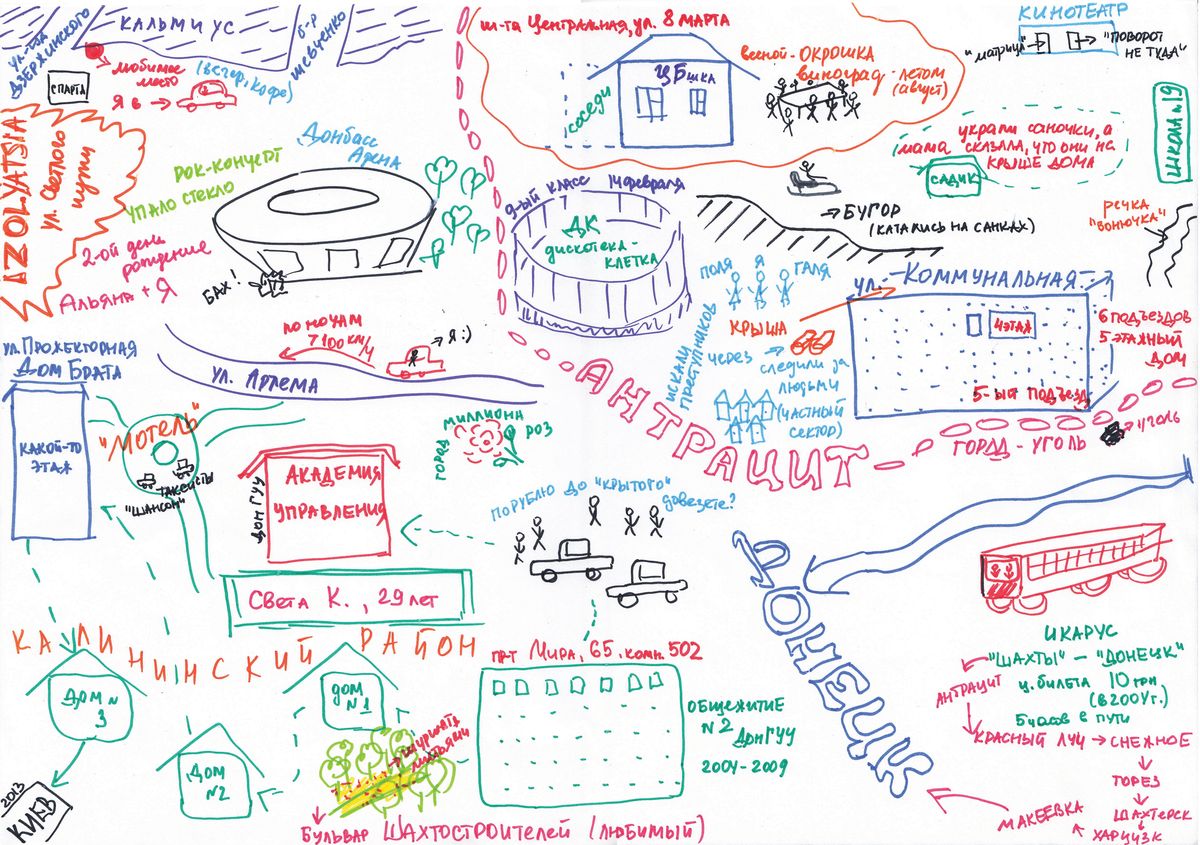 КАЛЬМИУС
ул-ца
ДЗЕРЖИНСКОГО
б-р
ШЕВЧЕНКО
любимое
место
(вечер, кофе)
СПАРТА
Я в →
AZOLYATSIA
ул. Светлого
пути
РОК-КОНЦЕРТ
УПАЛО СТЕКЛО
Донбасс
Арена
2-ой день
рождение
Альяна + Я
БАХ!
ш-та Центральная, ул. 8 МАРТА
СОСЕДИ
весной - ОКРОШКА
виноград - летом
(август)
КИНОТЕАТР
"матрица"
"ПОВОРОТ
НЕ ТУДА"
ШКОЛА №19
УКРАЛИ САНОЧКИ, А
МАМА СКАЗАЛА, ЧТО ОНИ НА
КРЫШЕ ДОМА
САДИК
9-ый класс 14 февраля
ДК
дискотека-
КЛЕТКА
→ БУГОР
(КАТАЛИСЬ НА САНКАХ)
РЕЧКА
"ВОНЮЧКА"
ПОЛЯ Я ГАЛЯ
ИСКАЛИ
ПРЕСТУПНИКОВ
КРЫША
ЧЕРЕЗ →
следили за
людьми
(ЧАСТНЫЙ
СЕКТОР)
ул. Коммунальная
4 ЭТАЖ
5-ый подъезд
6 ПОДЪЕЗДОВ
5 ЭТАЖНЫЙ
ДОМ
АНТРАЦИТ
ГОРОД - УГОЛЬ
УГОЛЬ
по ночам
7 100 км/ч
→ Я :)
ул. АРТЕМА
ул. Прожекторная
Дом Брата
КАКОЙ-ТО
ЭТАЖ
"МОТЕЛЬ"
ТАКСИСТЫ
"ШАНСОН"
ГОРОД
МИЛЛИОНА
РОЗ
ДонГУУ
АКАДЕМИЯ
УПРАВЛЕНИЯ
ПО РУБЛЮ ДО "КРЫТОГО" довезете?
Света К., 29 лет
КАЛИНИНСКИЙ РАЙОН
ДОМ №
3
ДОМ
№2
ДОМ
№1
2013
КИЕВ
шуршать
листьями
БУЛЬВАР ШАХТОСТРОИТЕЛЕЙ (ЛЮБИМЫЙ)
прт Мира, 65, комн. 502
ОБЩЕЖИТИЕ
№2 ДонГУУ
2004-2009
ДОНЕЦК
ИКАРУС
"ШАХТЫ" – "ДОНЕЦК"
ц. билета 10 грн
(в 200Чг.)
5 часов в пути
АНТРАЦИТ
КРАСНЫЙ ЛУЧ → СНЕЖНОЕ
ТОРЕЗ
ШАХТЕРСК
ХАРЦУЗК
МАКЕЕВКА